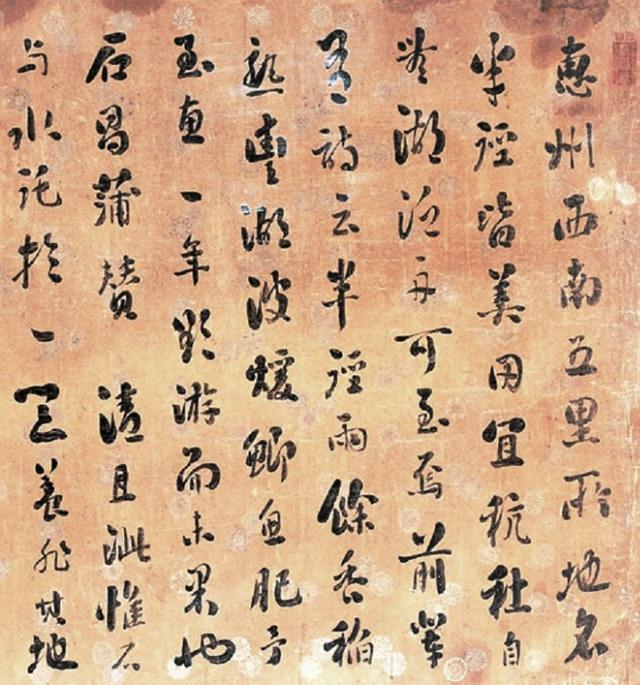 惠州西南五里所地名
半徑皆美田宜秔自
豐湖泛舟可至焉前輩
有詩云半徑雨餘香稻
熟豐湖波煖鯽魚肥予
至惠一年欲游而未果也
石昌蒲贊 清且泚惟石
与水託於一器養非其地